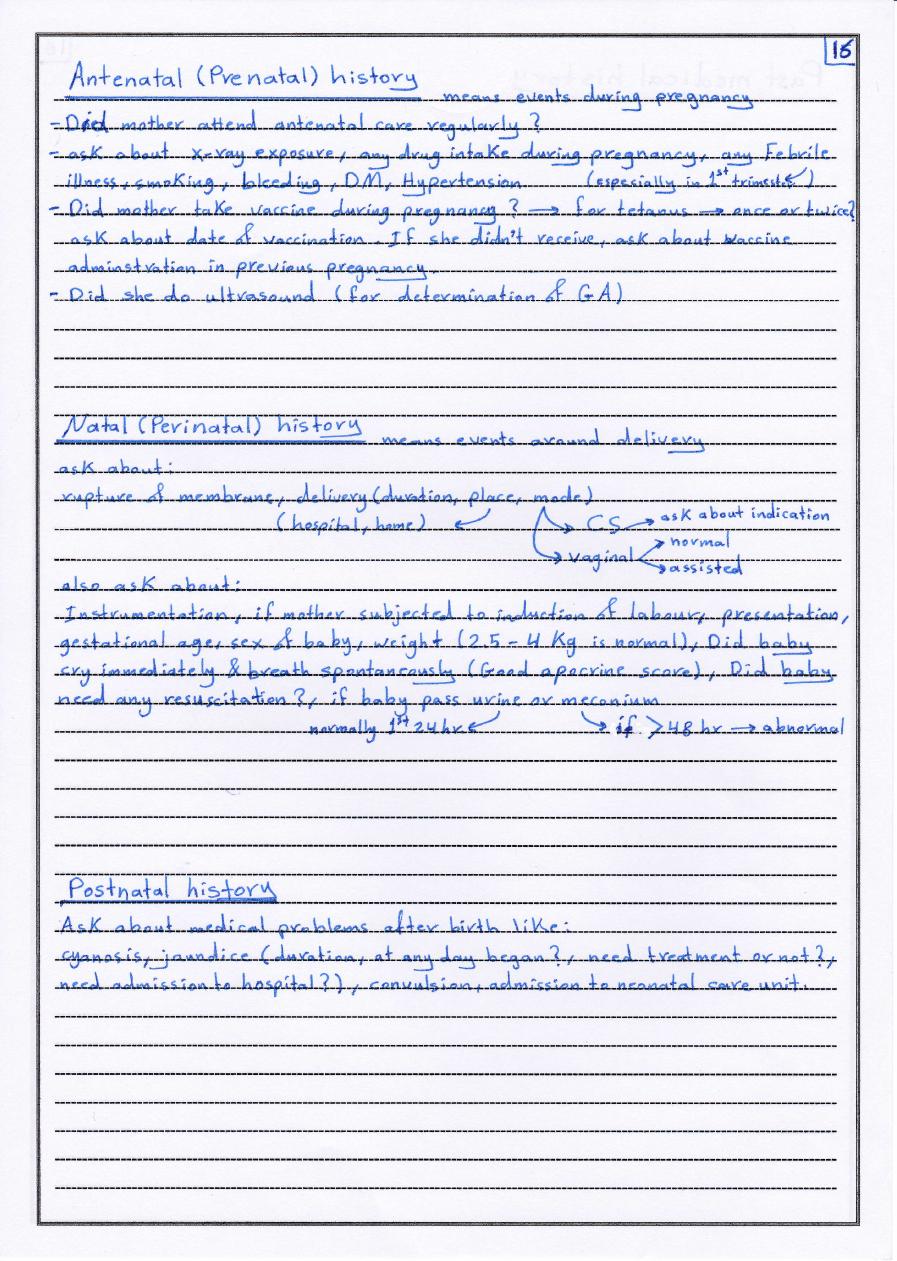 15
Antenatal (Prenatal) history means events during pregnancy
- Did mother attend antenatal care regularly ?
- ask about x-ray exposure, any drug intake during pregnancy, any Febrile
illness, smoking, bleeding, DM, Hypertension (especially in 1st trimester)
- Did mother take vaccine during pregnancy ? → for tetanus → once or twice?
ask about date of vaccination. If she didn't receive, ask about vaccine
adminstration in previous pregnancy.
- Did she do ultrasound (for determination of GA)
Natal (Perinatal) history means events around delivery
ask about:
rupture of membrane, delivery (duration, place, mode)
(hospital, home) CS → ask about indication
→ normal
vaginal → assisted
also ask about:
Instrumentation, if mother subjected to induction of labour, presentation,
gestational age, sex of baby, weight (2.5 - 4 Kg is normal), Did baby
cry immediately & breath spontaneously (Good apocrine score), Did baby
need any resuscitation?, if baby pass urine or meconium
normally 1st 24 hr → if > 48 hr → abnormal
Postnatal history
Ask about medical problems after birth like:
cyanosis, jaundice (duration, at any day began?, need treatment or not?,
need admission to hospital?), convulsion, admission to neonatal care unit.